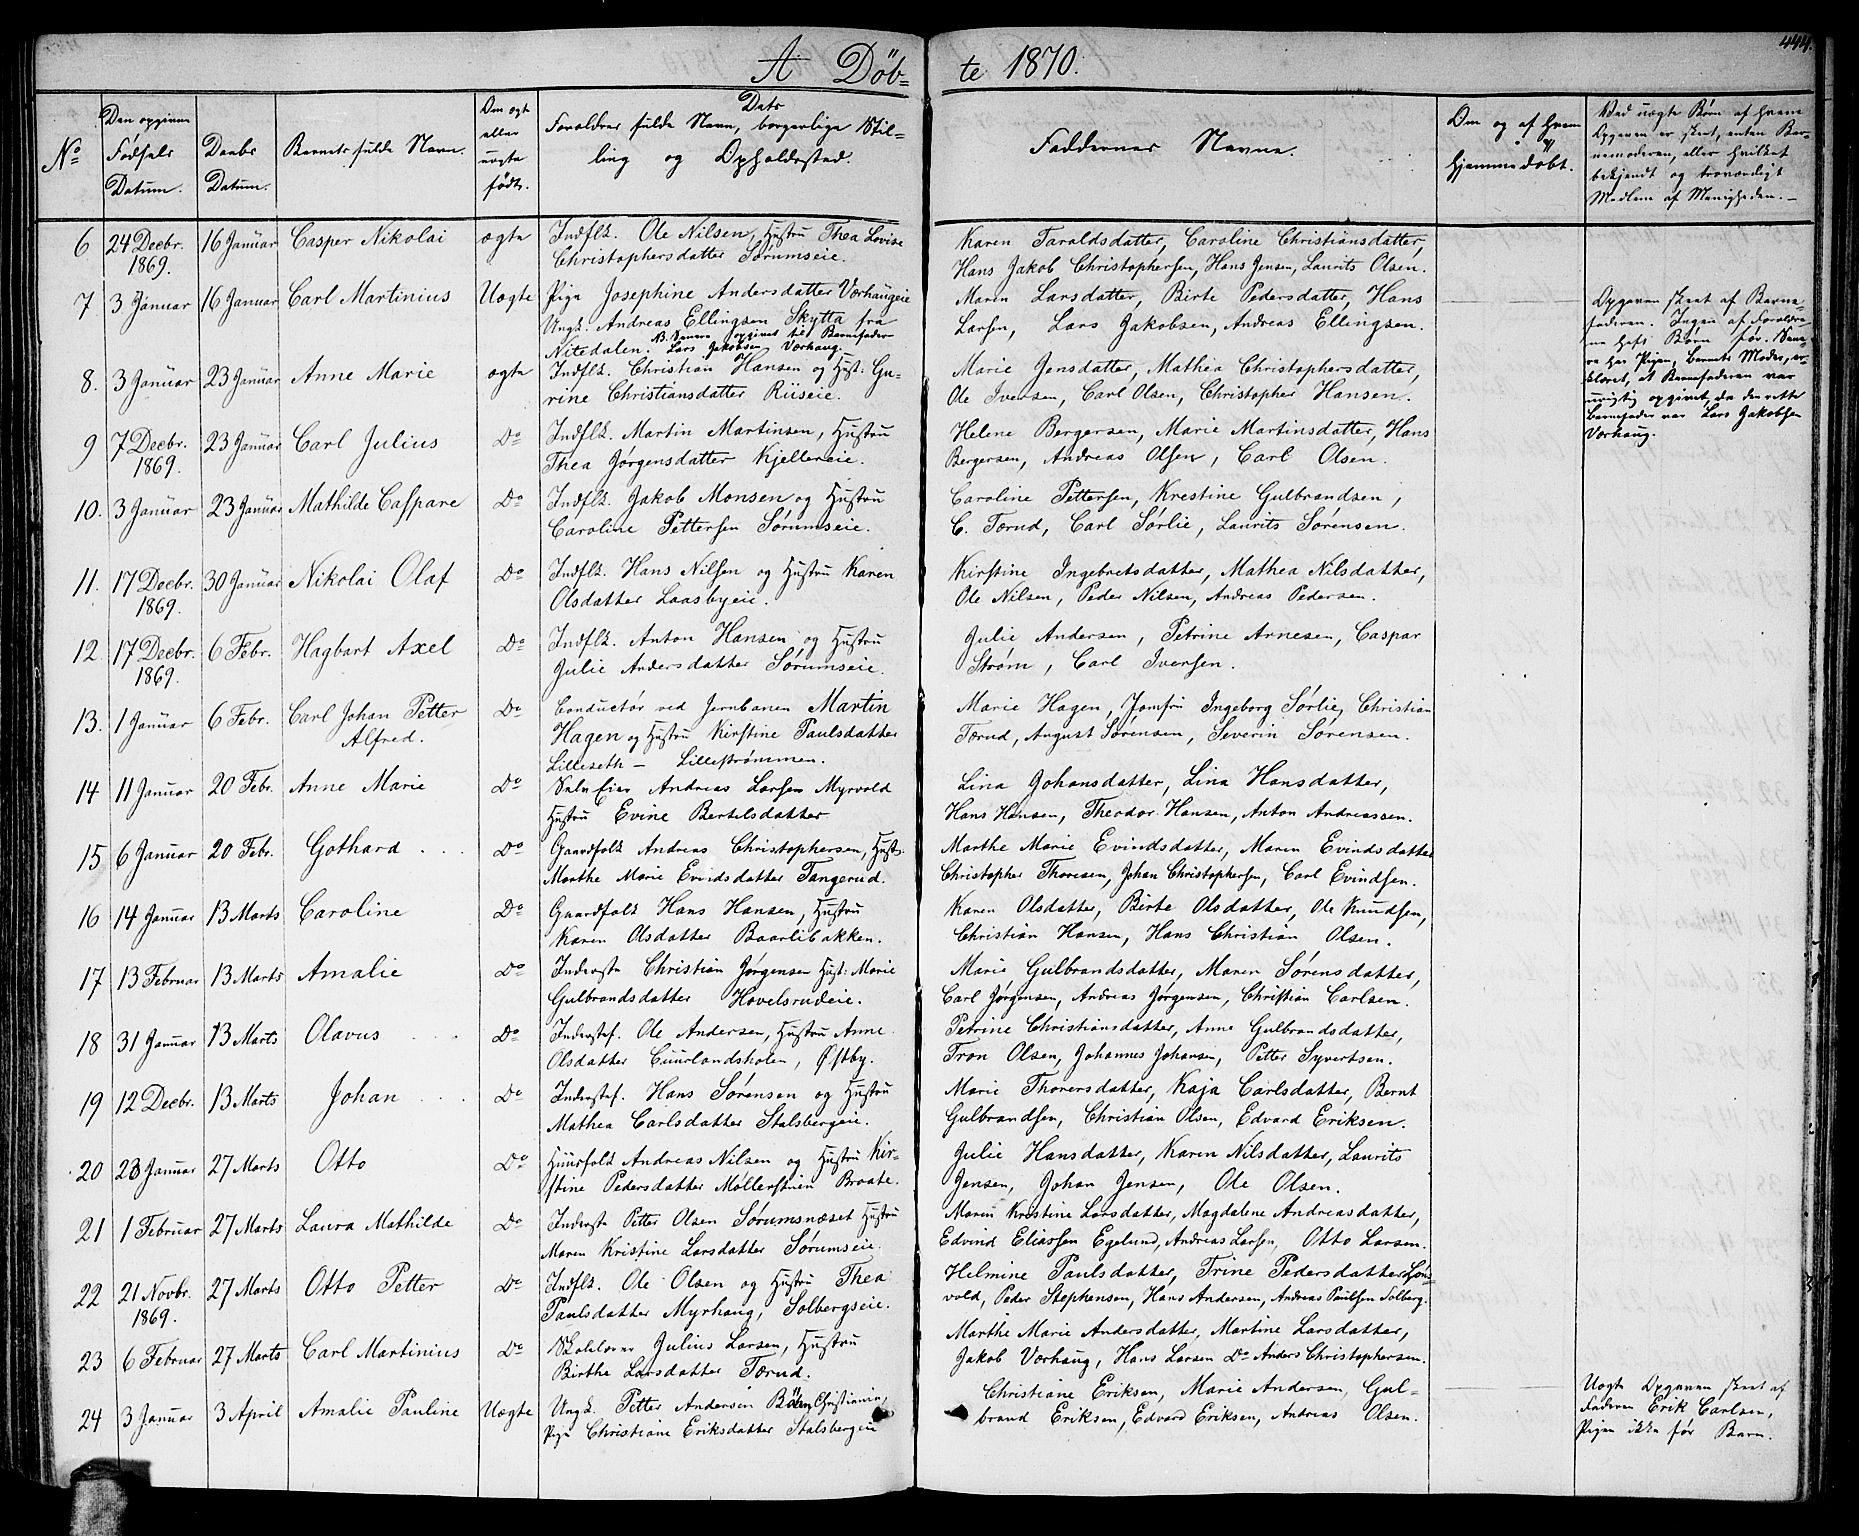 444.
A Døb-
te 1870.
No
Den opgivne Fødsels Datum.
Daabs Datum.
Barnets fulde Navn.
Om ægte eller uægte født.
Dets Forældres fulde Navn, borgerlige Stil-
ling og Opholdssted.
Faddernes Navne.
Om og af hvem hjemmedøbt.
Ved uægte Børn af hvem
Opgaven er skeet, enten Bar-
nemoderen, eller hvilket
bekjendt og troværdigt
Medlem af Menigheden.
6 24 Decbr. 1869. 16 Januar Casper Nikolai ægte Indflk. Ole Nilsen, Hustru Thea Lovise
Christophersdatter Sørumseie.
Karen Taraldsdatter, Caroline Christiansdatter,
Hans Jakob Christophersen, Hans Jensen, Laurits Olsen.
7 3 Januar 16 Januar Carl Martinius Uægte Pige Josephine Andersdatter Værhaugeie
Ungk. Andreas Ellingsen Skytta fra
Nitedalen. B. Senere opgivet til Barnefader
Lars Jakobsen Værhaug.
Maren Larsdatter, Birte Pedersdatter, Hans
Larsen, Lars Jakobsen, Andreas Ellingsen.
Opgaven skeet af Barne-
faderen. Ingen af Forældre-
ne havt Børn før. Sene-
re har Pigen, Barnets Moder, er-
klæret, at Barnefaderen var
urigtig opgivet, da den rette
Barnefader var Lars Jakobsen
Værhaug.
8. 3 Januar 23 Januar Anne Marie ægte Indflk. Christian Hansen og Hust: Gu-
rine Christiansdatter Riiseie.
Marie Jensdatter, Mathea Christophersdatter,
Ole Iversen, Carl Olsen, Christopher Hansen.
9 7 Decbr. 1869. 23 Januar Carl Julius Do Indflk. Martin Martinsen, Hustru
Thea Jørgensdatter Kjellereie.
Helene Bergersen, Marie Martinsdatter, Hans
Bergersen, Andreas Olsen, Carl Olsen.
10. 3 Januar 23 Januar Mathilde Caspare Do Indflk. Jakob Monsen og Hustru
Caroline Pettersen Sørumseie.
Caroline Pettersen, Krestine Gulbrandsen,
C. Tærud, Carl Sørlie, Laurits Sørensen.
11. 17 Decbr. 1869. 30 Januar Nikolai Olaf Do Indflk. Hans Nilsen og Hustru Karen
Olsdatter Laasbyeie.
Kirstine Ingebretsdatter, Mathea Nilsdatter,
Ole Nilsen, Peder Nilsen, Andreas Pedersen.
12. 17 Decbr. 1869. 6 Febr. Hagbart Axel Do Indflk. Anton Hansen og Hustru
Julie Andersdatter Sørumseie.
Julie Andersen, Petrine Arnesen, Caspar
Strøm, Carl Iversen.
13. 1 Januar 6 Febr. Carl Johan Petter
Alfred. Do Conductør ved Jernbanen Martin
Hagen og Hustru Kirstine Paulsdatter
Lilleseth - Lillestrømmen.
Marie Hagen, Jomfru Ingeborg Sørlie, Christian
Tærud, August Sørensen, Severin Sørensen.
14 11 Januar 20 Febr. Anne Marie Do Selveier Andreas Larsen Myrvold
Hustru Evine Bertelsdatter
Lina Johansdatter, Lina Hansdatter,
Hans Hansen, Theodor Hansen, Anton Andreassen.
15 6 Januar 20 Febr. Gothard Do Gaardfolk Andreas Christophersen, Hust:
Marthe Marie Evindsdatter Tangerud.
Marthe Marie Evindsdatter, Maren Evindsdatter
Christopher Thoresen, Johan Christophersen, Carl Evindsen.
16 14 Januar 13 Marts Caroline Do Gaardfolk Hans Hansen, Hustru
Karen Olsdatter Baarlibakken.
Karen Olsdatter, Birte Olsdatter, Ole Knudsen,
Christian Hansen, Hans Christian Olsen.
17 13 Februar 13 Marts Amalie Do Inderste Christian Jørgensen Hust: Marie
Gulbrandsdatter Hovelsrudeie.
Marie Gulbrandsdatter, Maren Sørensdatter,
Carl Jørgensen, Andreas Jørgensen, Christian Carlsen.
18 31 Januar 13 Marts Olavus Do Inderstf. Ole Andersen, Hustru Anne
Olsdatter Cuurlandsholen, Østby.
Petrine Christiansdatter, Anne Gulbrandsdatter,
Tron Olsen, Johannes Johansen, Petter Syvertsen.
19 12 Decbr. 13 Marts Johan Do Inderstf. Hans Sørensen og Hustru
Mathea Carlsdatter Stalsbergeie.
Marie Thorersdatter, Kaja Carlsdatter, Bernt
Gulbrandsen, Christian Olsen, Edvard Eriksen.
20 23 Januar 27 Marts Otto Do Huusfolk Andreas Nilsen og Hustru Kir-
stine Pedersdatter Møllerstuen Braate.
Julie Hansdatter, Karen Nilsdatter, Laurits
Jensen, Johan Jensen, Ole Olsen.
21 1 Februar 27 Marts Laura Mathilde Do Inderste Petter Olsen Sørumsnæset Hustru
Maren Kristine Larsdatter Sørumseie.
Maren Kristine Larsdatter, Magdalene Andreasdatter,
Edvind Eliassen Egelund, Andreas Larsen, Otto Larsen.
22 21 Novbr. 1869. 27 Marts Otto Petter Do Indflk. Ole Olsen og Hustru Thea
Paulsdatter Myrhaug, Solbergseie.
Helmine Paulsdatter, Trine Pedersdatter Løns-
vold, Peder Stephensen, Hans Andersen, Andreas Paulsen Solberg.
23 6 Februar 27 Marts Carl Martinius Do Skolelærer Julius Larsen, Hustru
Birthe Larsdatter Tærud.
Marthe Marie Andersdatter, Martine Larsdatter,
Jakob Værhaug, Hans Larsen Do Anders Christophersen.
24 3 Januar 3 April Amalie Pauline Uægte Ungk. Petter Andersen Christiania,
Pige Christiane Eriksdatter Stalsbergeie
Christiane Eriksen, Marie Andersen, Gul-
brand Eriksen, Edvard Eriksen, Andreas Olsen.
Uægte Opgaven skeet af
Faderen Erik Carlsen,
Pigen ikke før Barn.